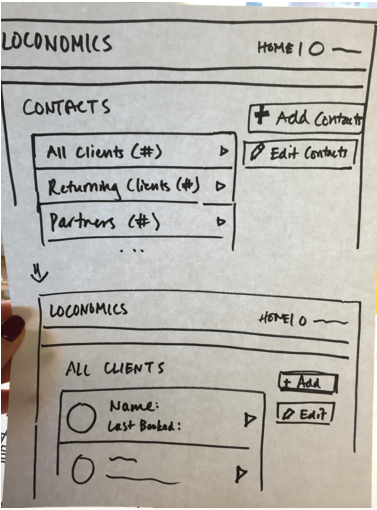 LOCONOMICS
HOME |
CONTACTS
+ Add Contacts
All Clients (#)
Edit Contacts
Returning Clients (#)
Partners (#)
...
LOCONOMICS
HOME |
ALL CLIENTS
+ Add
Name:
Last Booked:
Edit